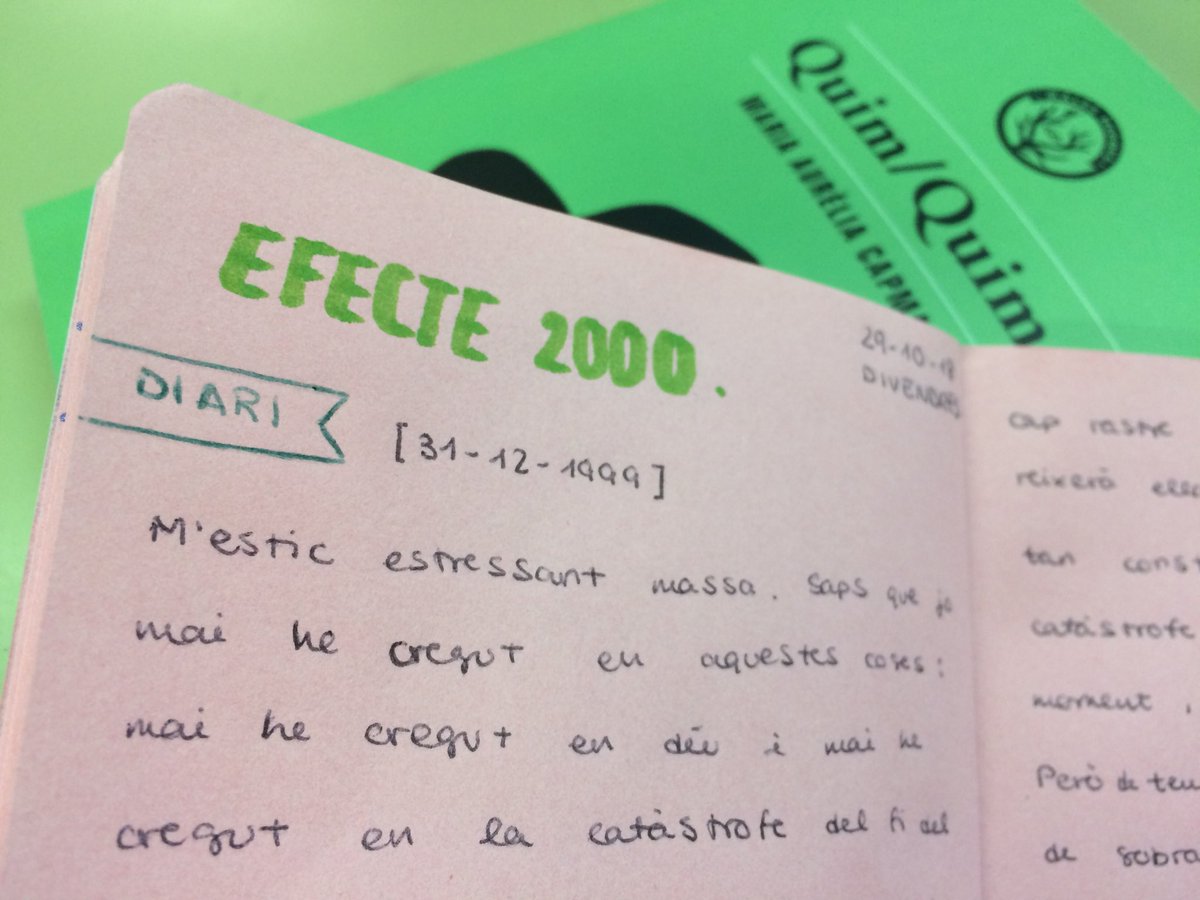 Quim/Quim
MARIA AURÈLIA CAPMA
EFECTE 2000.
29-10-18
DIVENDRES
DIARI
[31-12-1999]
M'estic estressant massa. Saps que jo
mai he cregut en aquestes coses;
mai he cregut en déu i mai he
cregut en la catàstrofe del fi del
cap rastre
reixerà
tan const
catàstrofe
moment,
Però de teu
de sobra